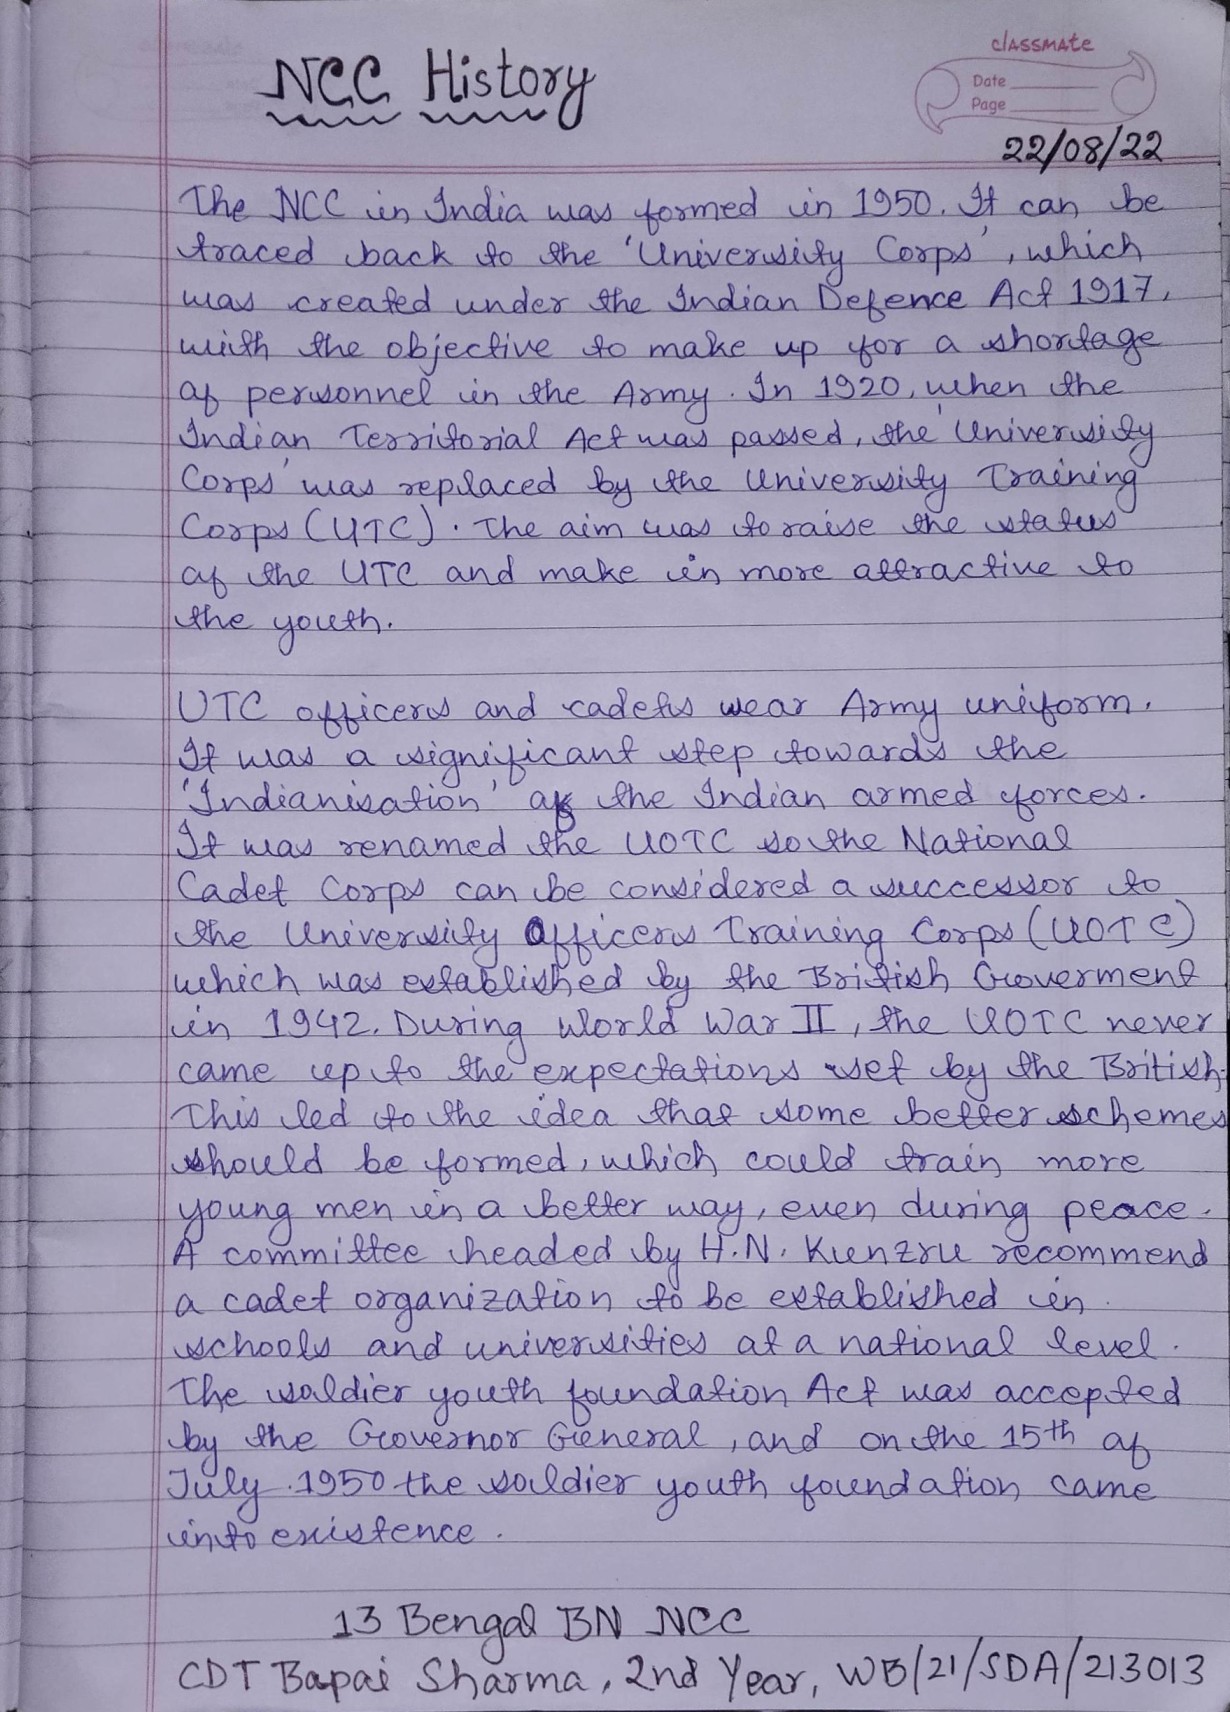 NCC History
classmate
Date
Page
22/08/22
The NCC in India was formed in 1950. It can be
traced back to the 'University Corps', which
was created under the Indian Defence Act 1917,
with the objective to make up for a shortage
of personnel in the Army. In 1920, when the
Indian Territorial Act was passed, the 'University
Corps' was replaced by the University Training
Corps (UTC). The aim was to raise the status
of the UTC and make in more attractive to
the youth.
UTC officers and cadets wear Army uniform.
It was a significant step towards the
'Indianisation' of the Indian armed forces.
It was renamed the UOTC so the National
Cadet Corps can be considered a successor to
the University Officers Training Corps (UOTC)
which was established by the British Goverment
in 1942. During World War II, the UOTC never
came up to the expectations set by the British.
This led to the idea that some better schemes
should be formed, which could train more
young men in a better way, even during peace.
A committee headed by H.N. Kunzru recommend
a cadet organization to be established in
schools and universities at a national level.
The soldier youth foundation Act was accepted
by the Governor General, and on the 15th of
July 1950 the souldier youth foundation came
into existence.
13 Bengal BN NCC
CDT Bapai Sharma, 2nd Year, WB/21/SDA/213013